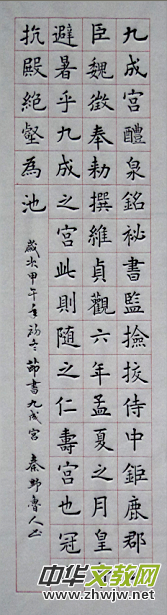 九成宮醴泉銘祕書監撿挍侍中鉅鹿郡
臣魏徵奉勅撰維貞觀六年孟夏之月皇
避暑乎九成之宮此則隨之仁壽宮也冠
抗殿絕壑為池
歲次甲午年 節書九成宮 秦野魯人书
中华文教网
www.zhwjw.net